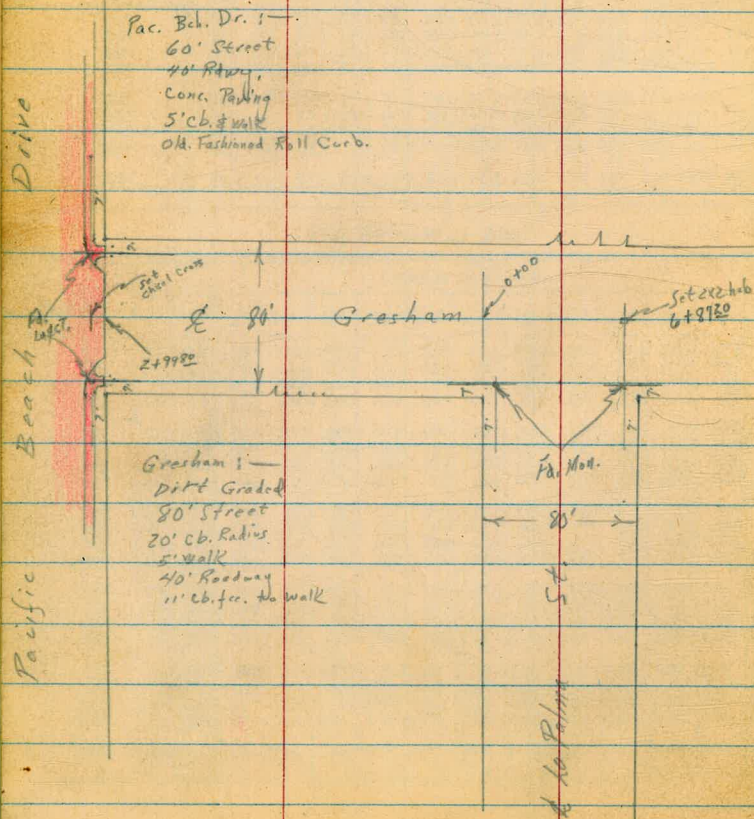 Pac. Bch. Dr. :—
60' Street
40' Rdwy.
Conc. Paving
5' Cb. & walk
Old. Fashioned Roll Curb.
Pacific Beach Drive
7'
Set
Chisel Cross
Fd.
2+99.80
7'
℄ 80' Gresham
0+00
Set 2x2 hub
7'
7'
Fd. Mon.
80'
St.
Gresham :—
Dirt Graded
80' Street
20' Cb. Radius
5' walk
40' Roadway
11' Cb. fce. to walk